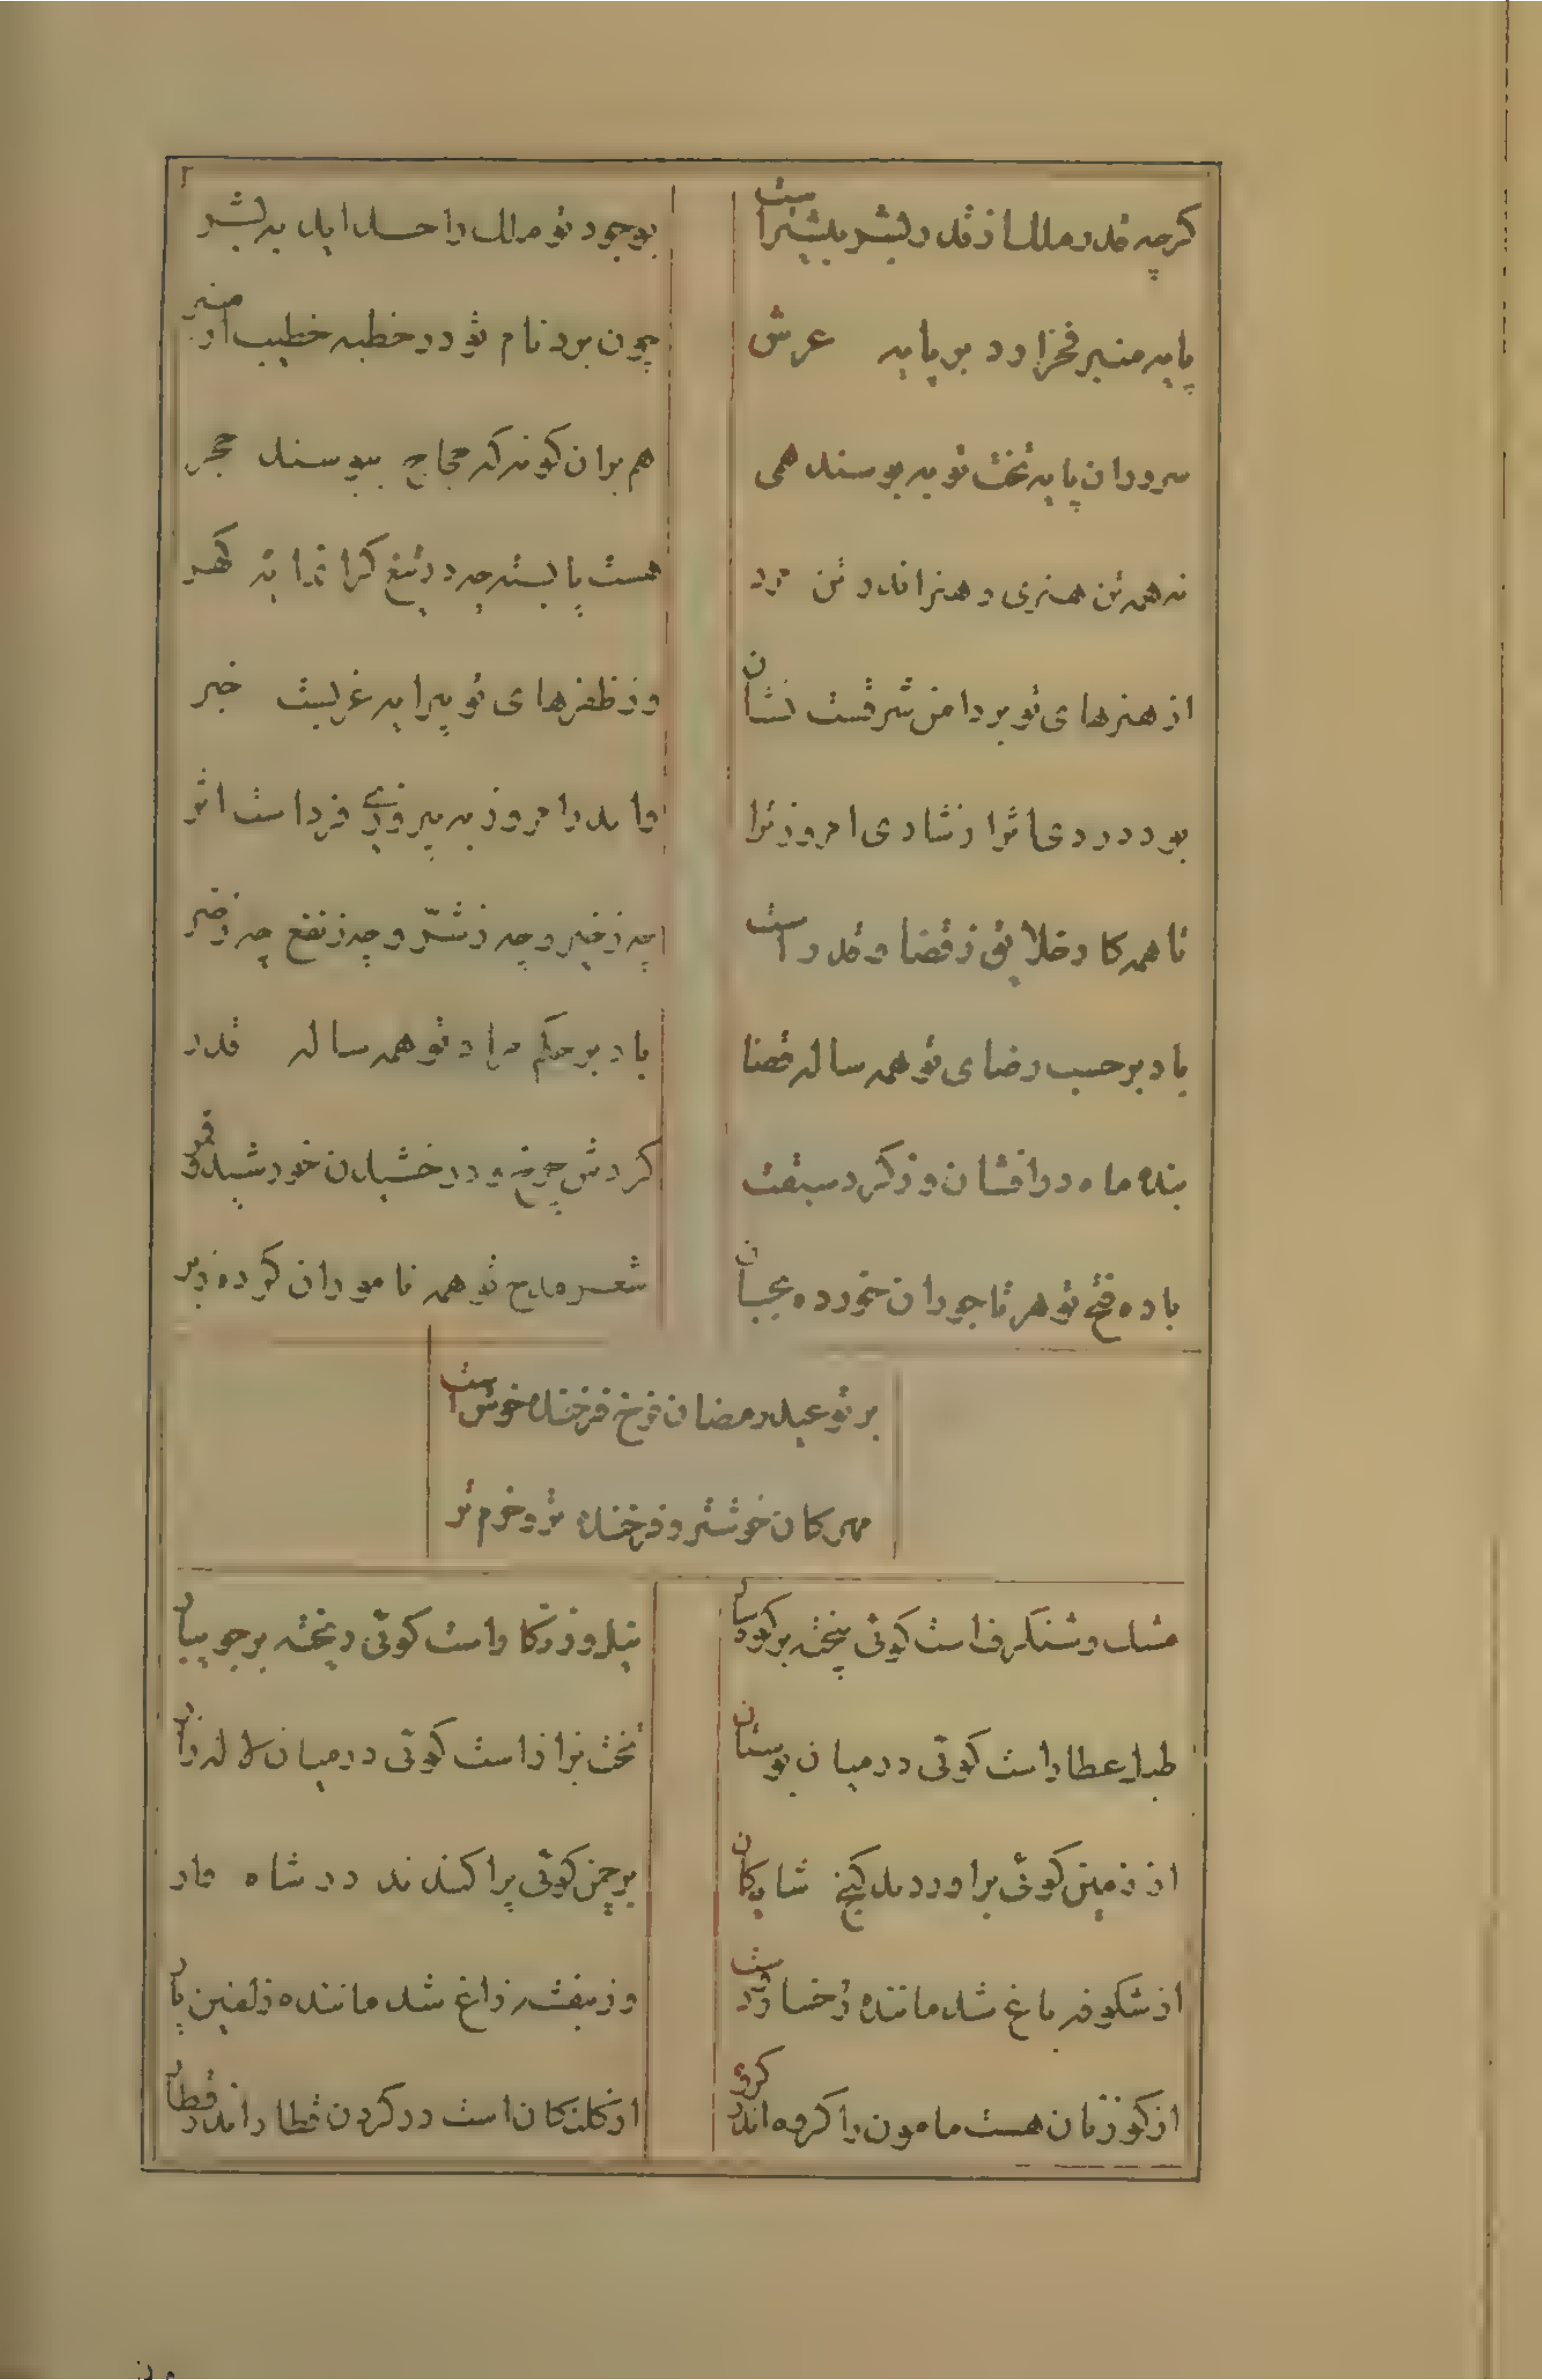 کرچه قدر ملک از قدر بشر بیشتر است
بوجود تو ملک را حسد اید به بشر
پایه منبر فخر اورد بر پایه عرش
چون برد نام تو در خطبه خطیب از منبر
سروران پایه تخت تو به بوسند همی
هم بران کونه که حجاج ببوسند حجر
نه همه تن هنری و هنر اندر تن مرد
هست بایسته چه در تیغ کرانمایه کهر
از هنرهای تو بر دامن شرقست نشان
وز ظفرهای تو پیرایه غربیت خبر
بود در ردی اثر از شادی امروز ترا
واید از امروز به پیروزی فردات اثر
تا همه کار خلایق ز قضا و قدر است
چه ز خیر و چه ز شرّ و چه ز نفع چه ز ضر
باد بر حسب رضای تو همه ساله قضا
باد بر حکم مراد تو همه ساله قدر
بنده ماه درافشان و ز کرد سپهت
کردش چرخ و درخشیدن خورشید و قمر
باده فتح تو هر تاجوران خورده بجان
شعر مدح تو همه ناموران کرده ز بر
بر تو عید رمضان فرخ فرخنده خوش است
مهرکان خوشتر و فرخنده تر و خرم تر
مشک و شنکرف است کوئی بیخته بر کوهسار
نیل و زنکار است کوئی ریخته بر جویبار
طبل عطار است کوئی در میان بوستان
تخت بزاز است کوئی در میان لاله زار
از زمین کوئی براوردند کنج شایکان
بر چمن کوئی پراکندند در شاه وار
از شکوفه باغ شد ماننده رخسار دوست
وز بنفشه راغ شد ماننده زلفین یار
از کوزنان هست هامون را کروه اندر کروه
از کلنکان است در کردن قطار اندر قطار